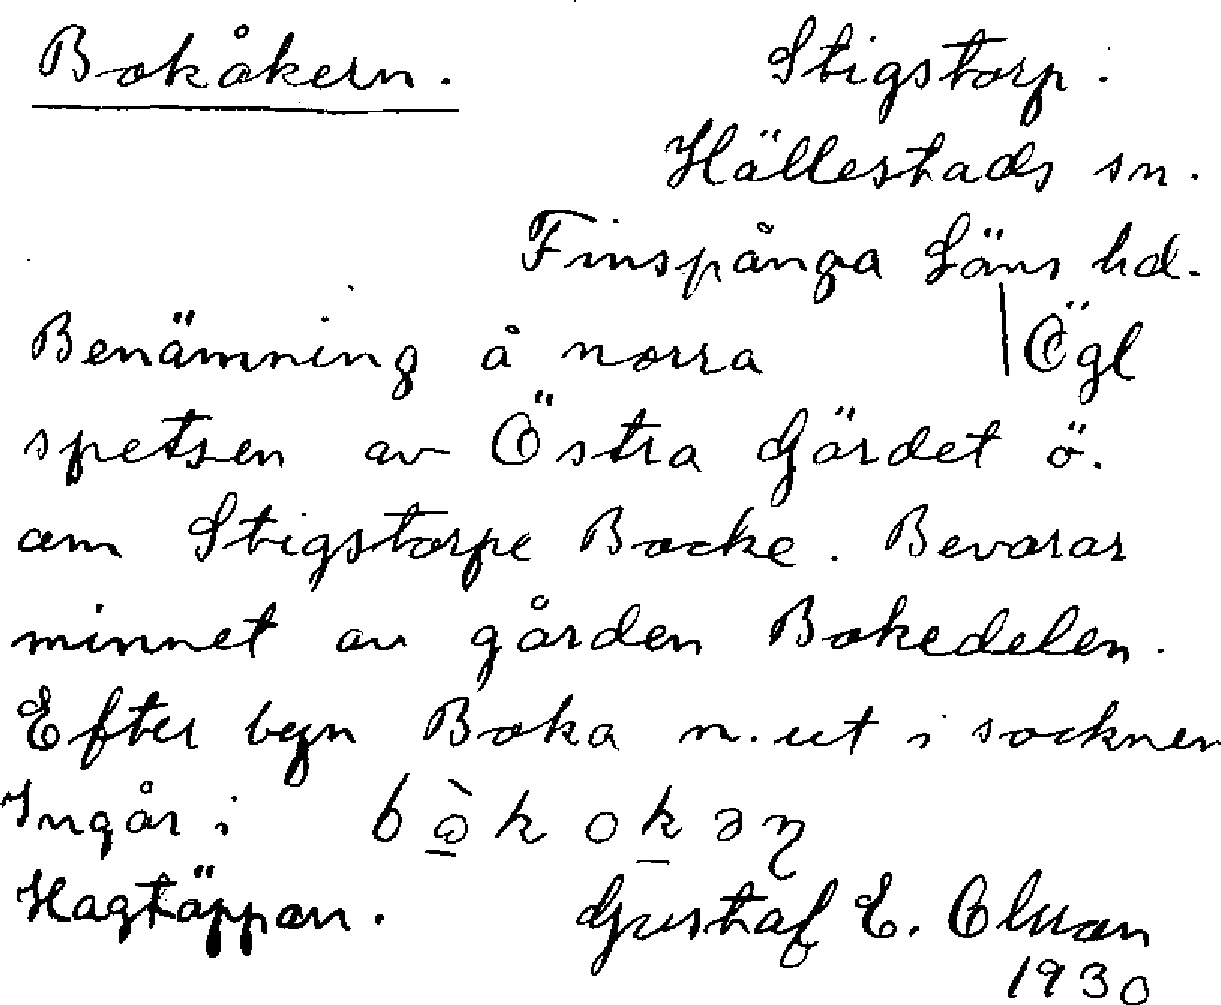 Bokåkern. Stigstorp.
Hällestads sn.
Finspånga Läns hd.
Benämning å norra | Ögl
spetsen av Östra Gärdet ö.
om Stigstorps Backe. Bevarar
minnet av gården Bokedelen.
Efter byn Boka n. ut i socknen
Ingår i
Hagtäppan. Gustaf E. Olsson
1930